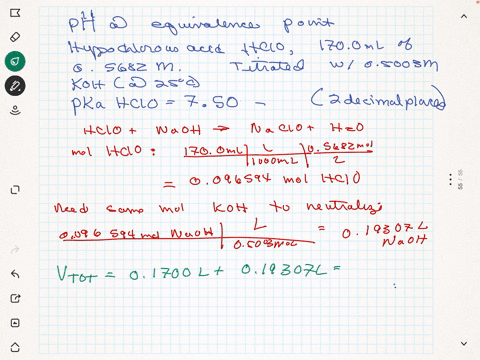 pH @ equivalence point
Hypochlorous acid HClO, 170.0mL of
0.5682 M. Titrated w/ 0.5003M
KOH (@ 25°C)
pKa HClO = 7.50 - (2 decimal places)
HClO + NaOH → NaClO + H2O
mol HClO: 170.0mL | L | 0.5682 mol
1000mL | L
= 0.096594 mol HClO
Need same mol KOH to neutralize
0.096 594 mol NaOH | L = 0.19307 L
0.5003mol NaOH
VTOT = 0.1700 L + 0.19307L =